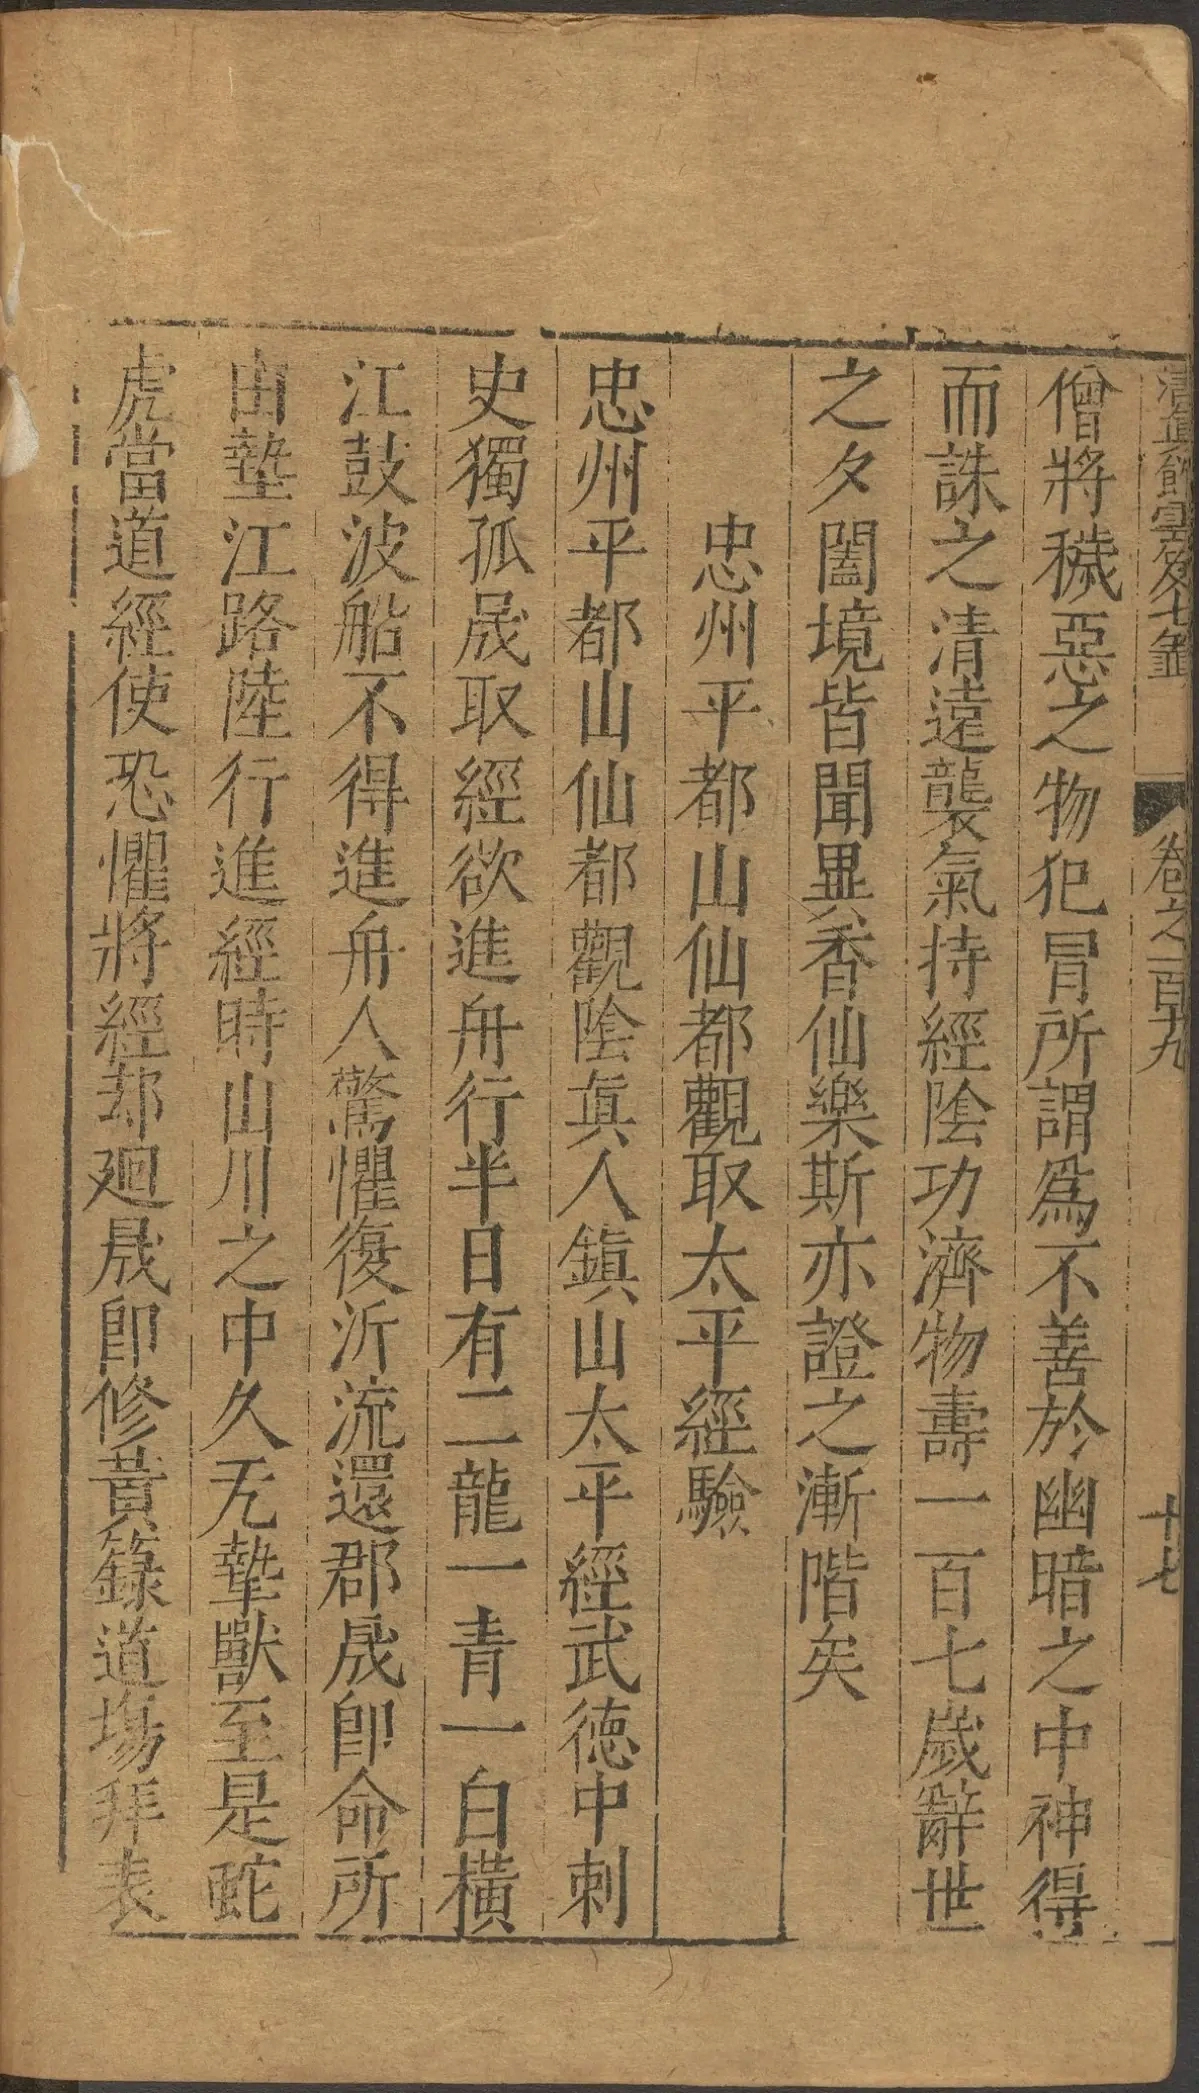 清眞館雲笈七籖 卷之一百十九 十七
僧將穢惡之物犯冒所謂爲不善於幽暗之中神得
而誅之清遠襲氣持經陰功濟物壽一百七歲辭世
之夕闔境皆聞異香仙樂斯亦證之漸階矣
忠州平都山仙都觀取太平經驗
忠州平都山仙都觀陰眞人鎮山太平經武徳中刺
史獨孤晟取經欲進舟行半日有二龍一青一白橫
江鼓波船不得進舟人驚懼復沂流還郡晟卽命所
由墊江路陸行進經時山川之中久无摯獸至是虵
虎當道經使恐懼將經却廻晟卽修黃籙道場拜表